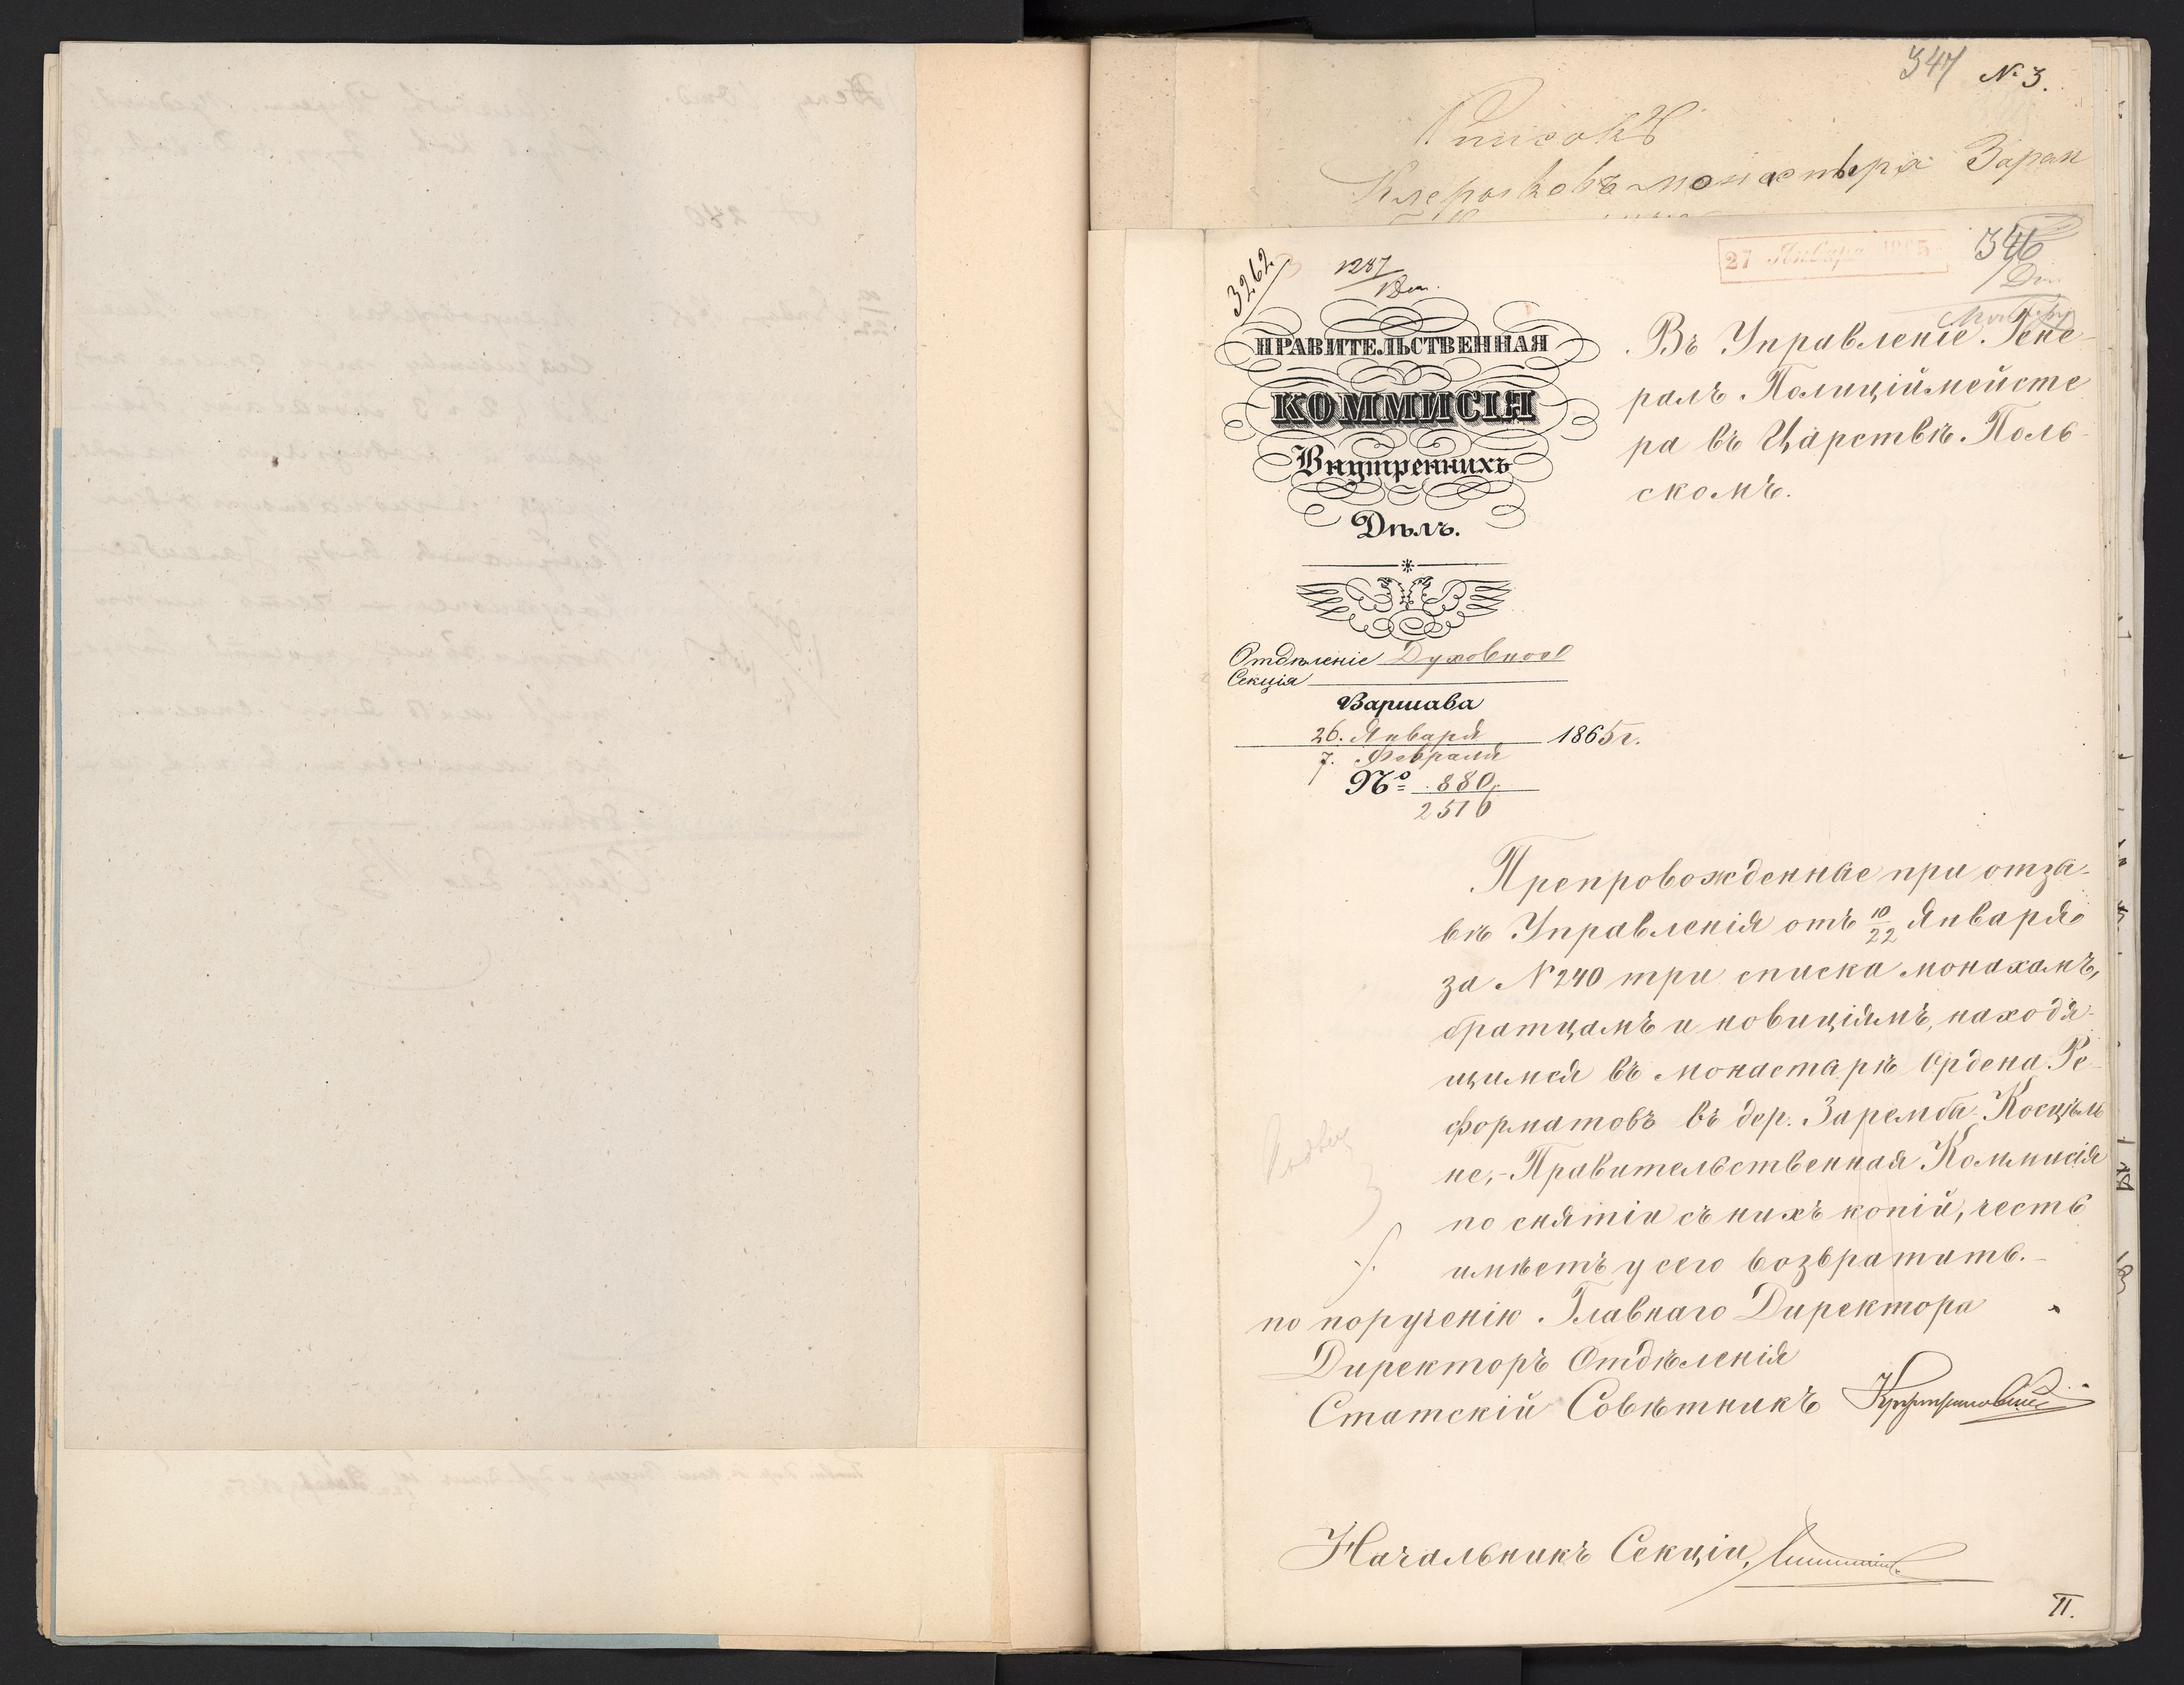 347 № 3.
Списокъ
Клериковъ монастыря Зарем
27 Января 1865
346
3262
1287
ПРАВИТЕЛЬСТВЕННАЯ
КОММИСІЯ
Внутреннихъ
Дѣлъ.
Отдѣленіе Духовное
Секція
Варшава
26. Января
7. Февраля 1865 г.
№ 880
2516
Въ Управленіе Гене-
ралъ Полиціймейсте
ра въ Царствѣ Поль-
скомъ.
Препровожденные при отзы-
вѣ Управленія отъ 10/22 Января
за № 240 три списка монахамъ,
братцамъ и новиціямъ, находя-
щимся въ монастырѣ Ордена Ре-
форматовъ въ дер. Заремба Косцѣль
не,- Правительственная Коммисія
по снятіи съ нихъ копій, честь
имѣетъ у сего возвратить.-
по порученію Главнаго Директора
Директоръ Отдѣленія
Статскій Совѣтникъ
Начальникъ Секціи,
П.